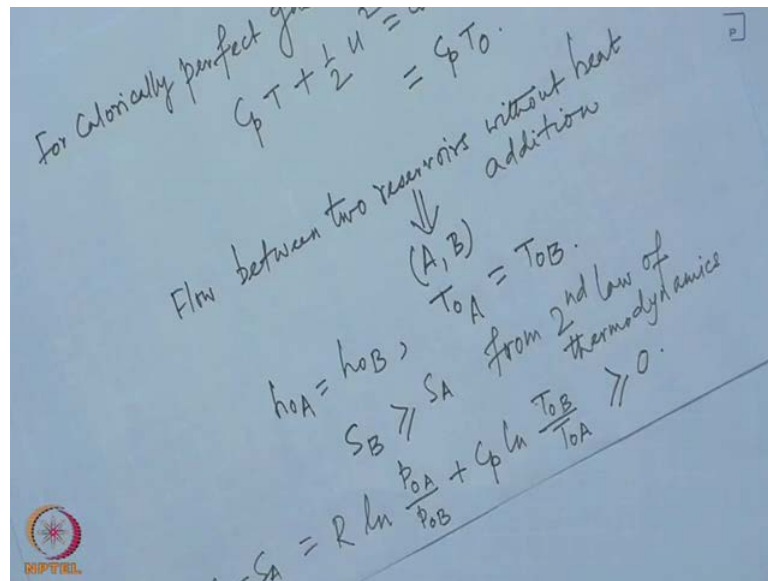 For Calorically perfect
CpT + 1/2 u² =
= CpT₀.
Flow between two reservoirs without heat
addition
⇓
(A, B)
h₀A = h₀B, T₀A = T₀B.
S_B ≥ S_A from 2nd law of
thermodynamics
S_A = R ln p₀A/p₀B + Cp ln T₀B/T₀A ≥ 0.
P
NPTEL